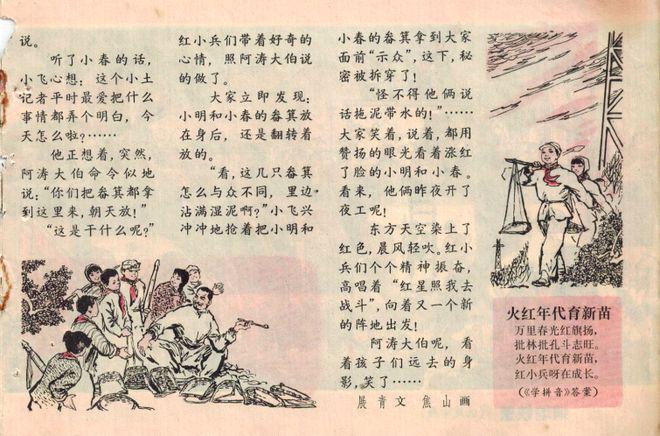 说。
听了小春的话，
小飞心想：这个小土
记者平时最爱把什么
事情都弄个明白，今
天怎么啦？……
他正想着，突然，
阿涛大伯命令似地
说：“你们把畚箕都拿
到这里来，朝天放！”
“这是干什么呢？”
红小兵们带着好奇的
心情，照阿涛大伯说
的做了。
大家立即发现：
小明和小春的畚箕放
在身后，还是翻转着
放的。
“看，这几只畚箕
怎么与众不同，里边
沾满湿泥啊？”小飞兴
冲冲地抢着把小明和
小春的畚箕拿到大家
面前“示众”，这下，秘
密被拆穿了！
“怪不得他俩说
话拖泥带水的！”……
大家笑着，说着，都用
赞扬的眼光看着涨红
了脸的小明和小春。
看来，他俩昨夜开了
夜工呢！
东方天空染上了
红色，晨风轻吹。红小
兵们个个精神振奋，
高唱着“红星照我去
战斗”，向着又一个新
的阵地出发！
阿涛大伯呢，看
着孩子们远去的身
影，笑了……
展青文 焦山画
火红年代育新苗
万里春光红旗扬，
批林批孔斗志旺。
火红年代育新苗，
红小兵呀在成长。
（《学拼音》答案）